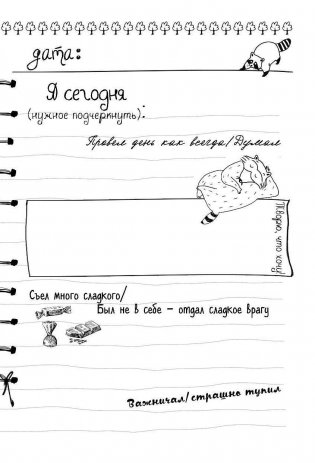 дата:
Я сегодня
(нужное подчеркнуть):
Провел день как всегда/Думал
Творю, что хочу!
Съел много сладкого/
Был не в себе – отдал сладкое врагу
Важничал/страшно тупил